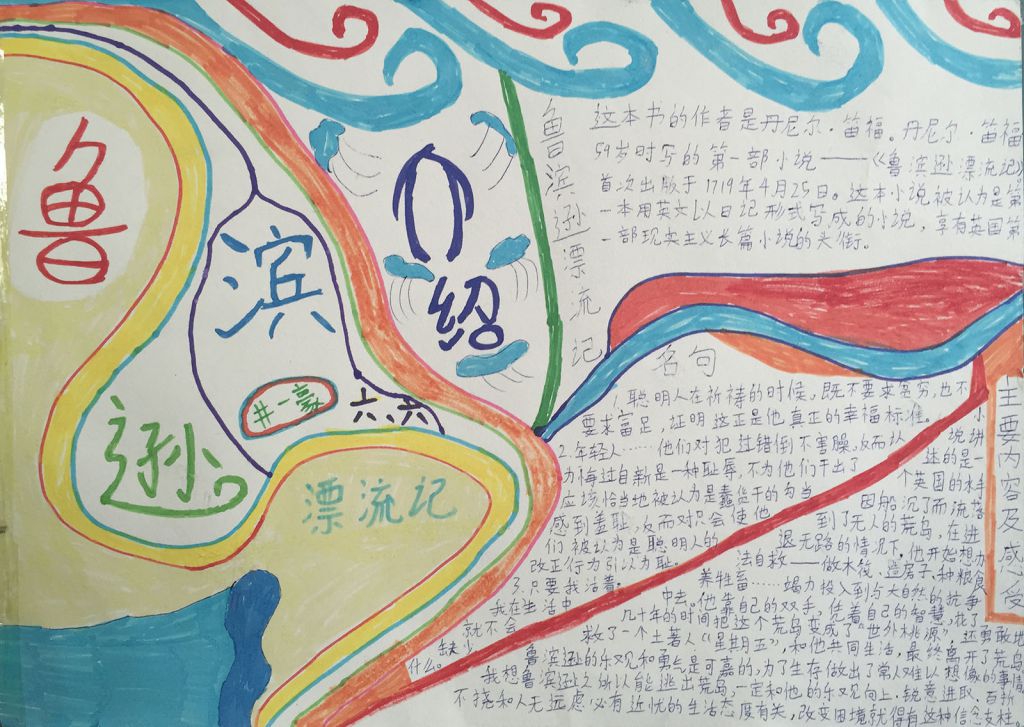 鲁
滨
逊
漂流记
井一豪
六、六
介绍
鲁滨逊漂流记
这本书的作者是丹尼尔·笛福。丹尼尔·笛福
59岁时写的第一部小说——《鲁滨逊漂流记》
首次出版于1719年4月25日。这本小说被认为是第
一本用英文以日记形式写成的小说,享有英国第
一部现实主义长篇小说的头衔。
名句
1.聪明人在祈祷的时候,既不要求贫穷,也不
要求富足,证明这正是他真正的幸福标准。
2.年轻人……他们对犯过错倒不害臊,反而认
为悔过自新是一种耻辱,不为他们干出了
应该恰当地被认为是蠢货干的勾当
感到羞耻,反而对只会使他
们被认为是聪明人的
改正行为引以为耻。
3.只要我活着。
我在生活中
就不会
缺少
什么。
主要内容及感受
小
说讲
述的是一
个英国的水手
因船沉了而流落
到了无人的荒岛,在进
退无路的情况下,他开始想办
法自救——做木筏、造房子、种粮食
养牲畜……竭力投入到与大自然的抗争
中去。他靠自己的双手,凭着自己的智慧,花了
几十年的时间把这个荒岛变成了“世外桃源”,还勇敢地
救了一个土著人(“星期五”,和他共同生活,最终离开了荒岛
鲁滨逊的乐观和勇气是可嘉的,为了生存做出了常人难以想像的事情
我想鲁滨逊之所以能逃出荒岛,一定和他的乐观向上,锐意进取、百折
不挠和人无远虑必有近忧的生活态度有关,改变困境就得有这种信念支柱